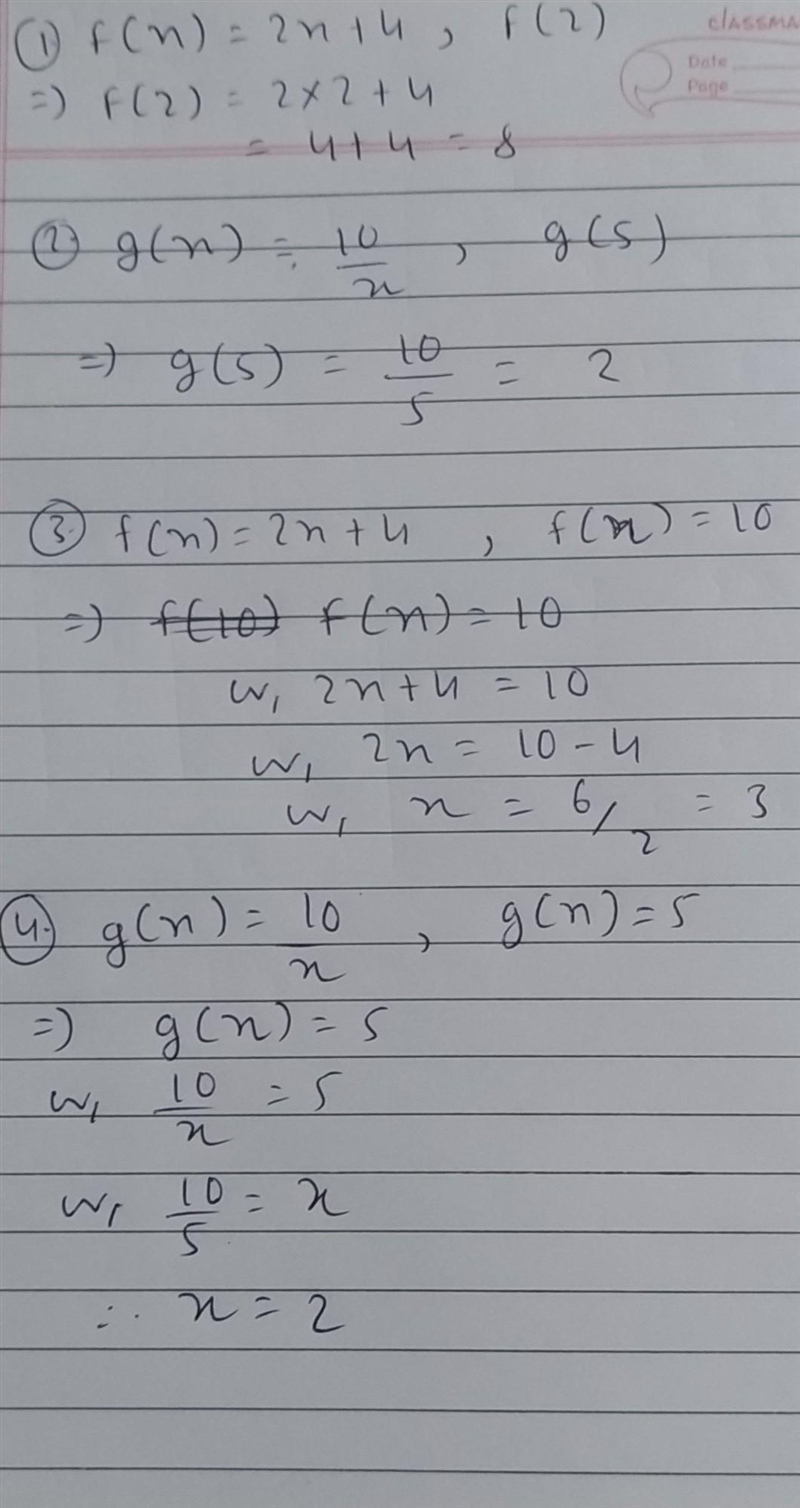 ① f(x) = 2x+4, f(2)
CLASSMA
Date
Page
=) f(2) = 2×2+4
= 4+4 = 8
② g(x) = 10/x, g(5)
=) g(5) = 10/5 = 2
③ f(x) = 2x+4, f(x) = 10
=) f(10) f(x) = 10
w, 2x+4 = 10
w, 2x = 10-4
w, x = 6/2 = 3
④ g(x) = 10/x, g(x) = 5
=) g(x) = 5
w, 10/x = 5
w, 10/5 = x
∴ x = 2